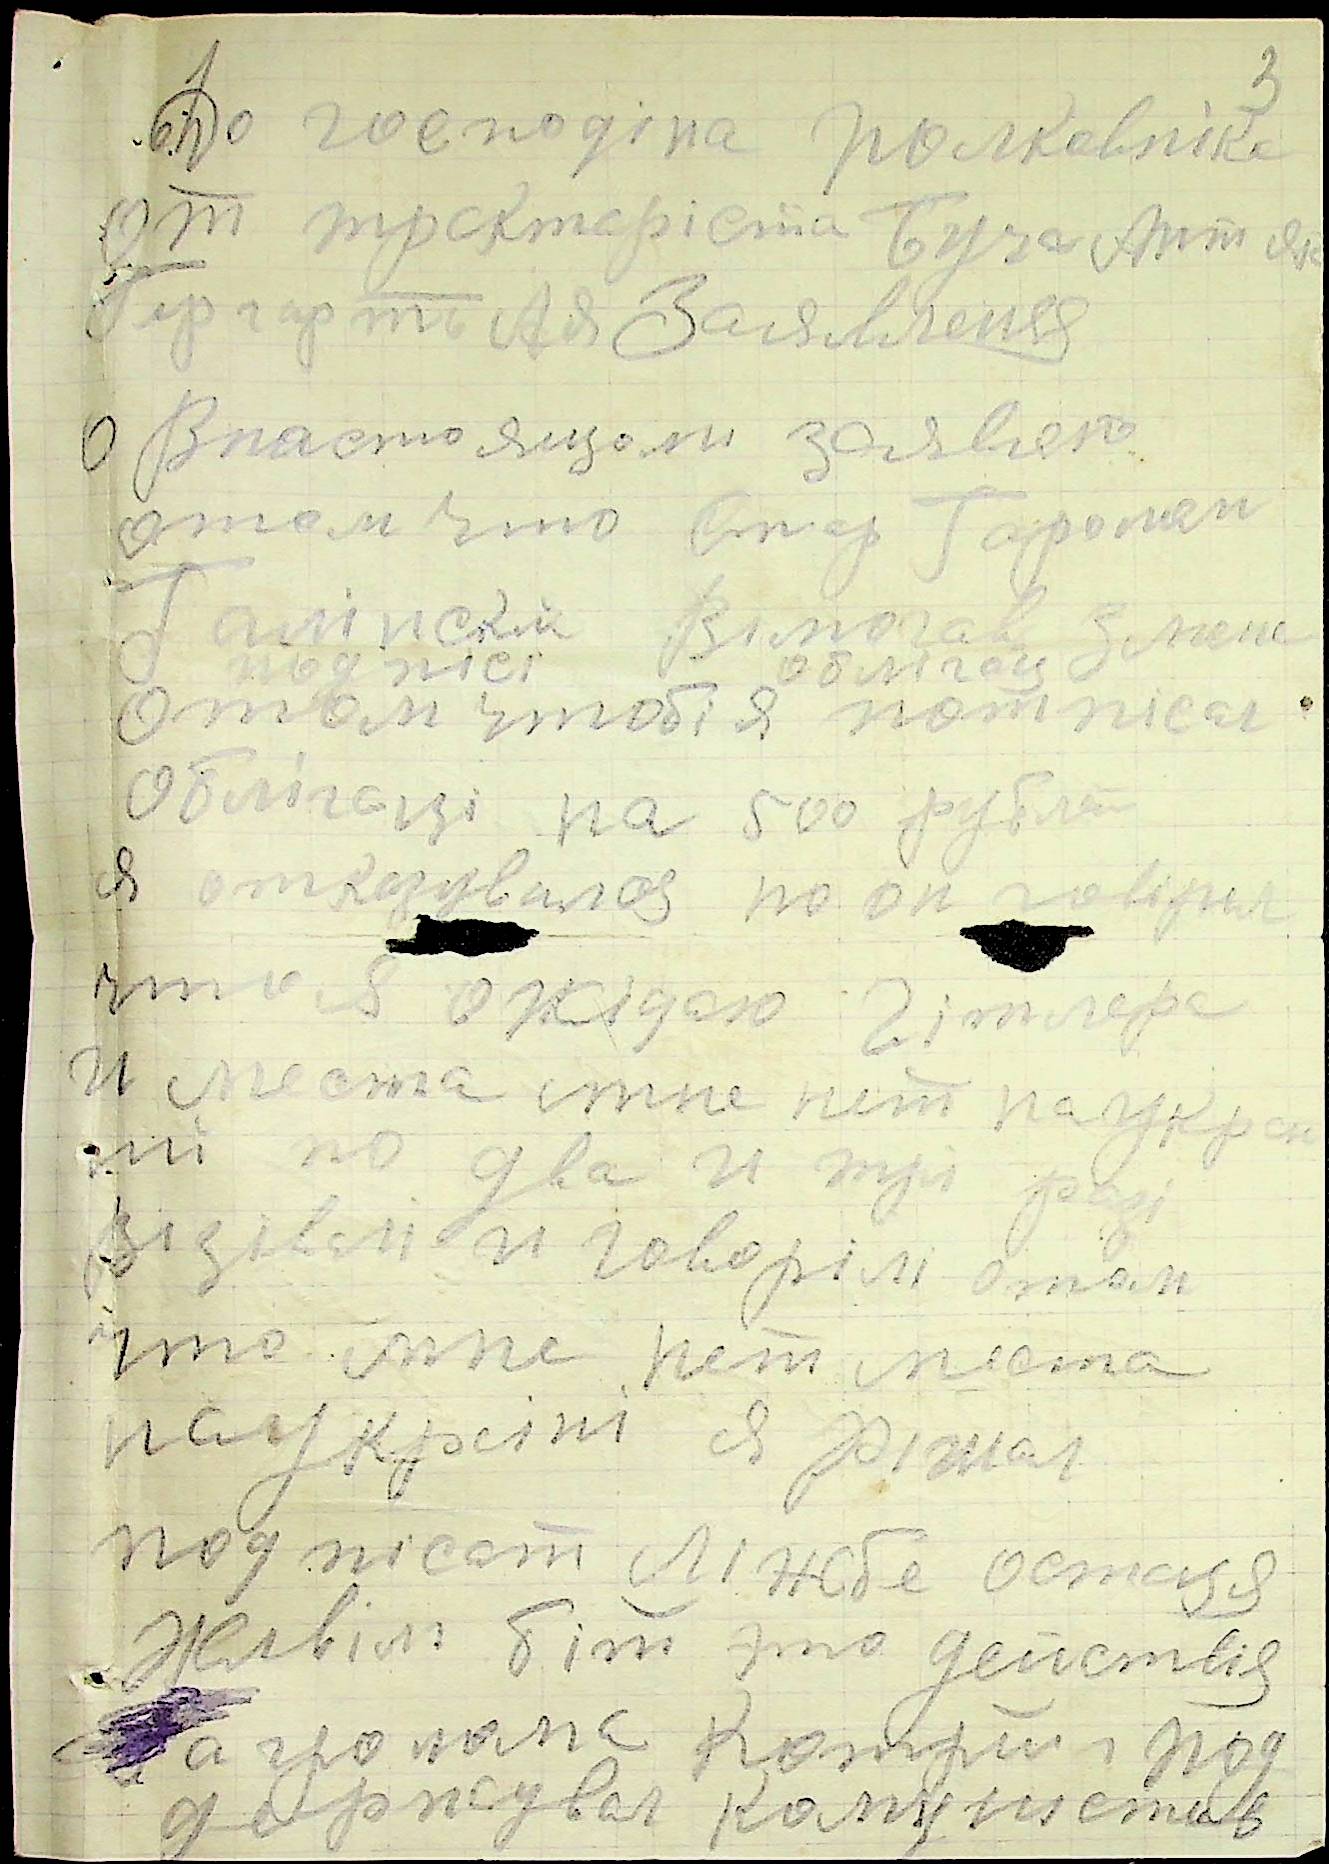 3
До господіна полковніка
от тракторіста Буга
Гергарть А Я Заявленія
Внастоящом заявляю
отом что Стар Гароман
Галінский Вімогав Змене
подпісі облігац
отом чтобі я потпісал
Облігаці на 500 рублет
я отказувался но он говіріл
что я ожідаю Гітлера
и места мне нет наукраи
ні по два и трі разі
візівалі и говорілі отом
что мне нет места
наукраіні я рішал
подпісат лішбе остаця
Жівім біт это действія
агронома Которий под
держувал Комуністів